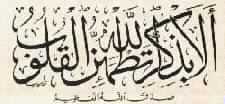 ألا بذكر الله تطمئن القلوب
صدق الله العظيم